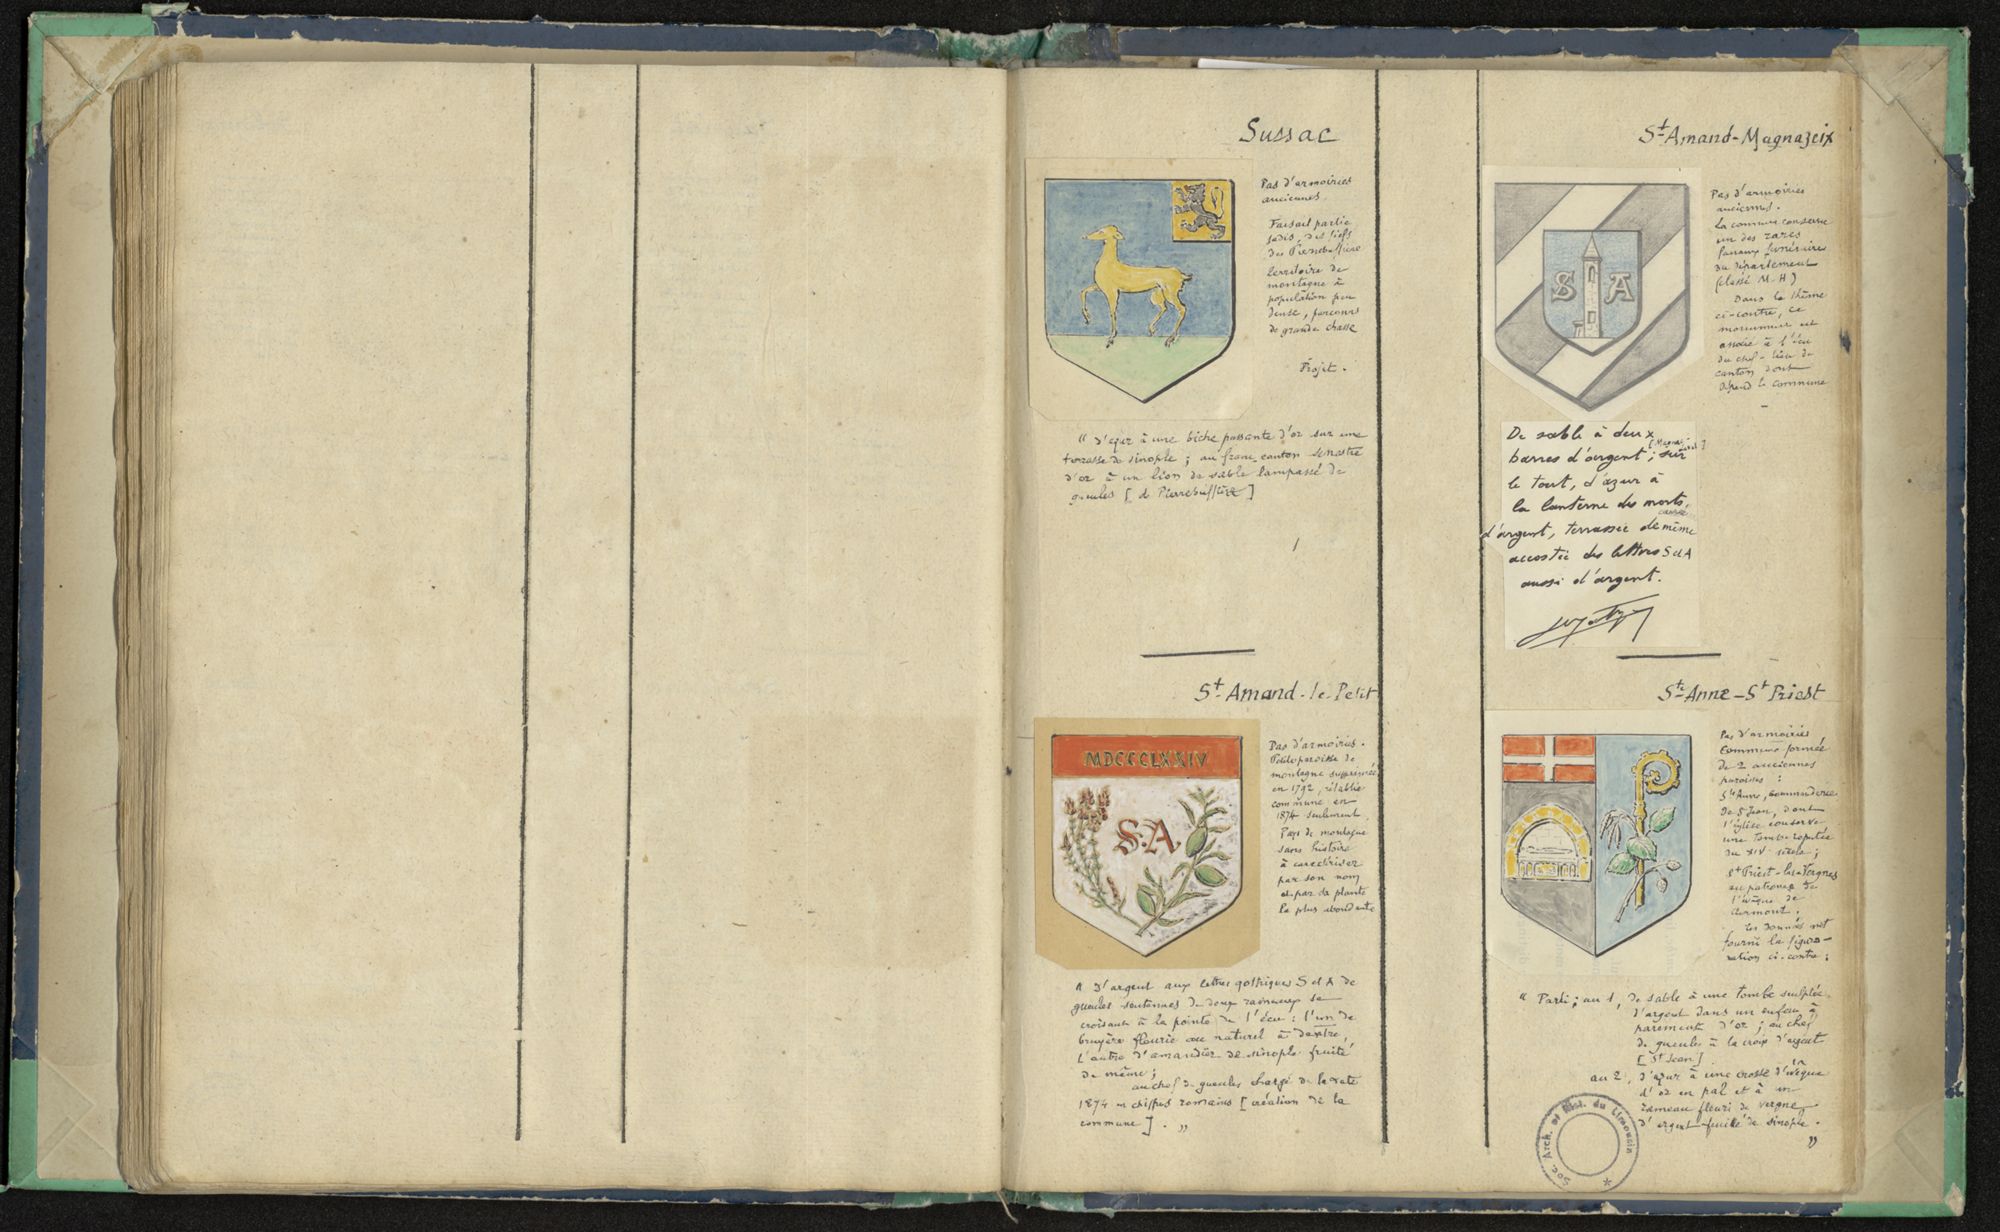 Sussac
Pas d'armoiries
anciennes.
Faisait partie
jadis, des fiefs
des Pierrebuffière
territoire de
montagne à
population peu
dense, parcours
de grande chasse
Projet.
" D'azur à une biche passante d'or sur une
terrasse de sinople ; au franc canton senestre
d'or à un lion de sable lampassé de
gueules [ de Pierrebuffière ]
St Amand-le-Petit
MDCCCLXXIV
S.A
Pas d'armoiries.
Petite paroisse de
montagne supprimée
en 1792, rétablie
commune en
1874 seulement.
Pays de montagne
sans histoire
à caractériser
par son nom
et par sa plante
la plus abondante
" D'argent aux lettres gothiques S et A de
gueules soutenues de deux rameaux se
croisant à la pointe de l'écu : l'un de
bruyère fleurie au naturel à dextre,
l'autre d'amandier de sinople fruité
de même ;
au chef de gueules chargé de la date
1874 en chiffres romains [ création de la
commune ] . "
St Amand-Magnazeix
S A
Pas d'armoiries
anciennes.
La commune conserve
un des rares
fanaux funéraires
du département
(classé M.H)
Dans le thème
ci-contre, ce
monument est
associé à l'écu
du chef-lieu de
canton dont
dépend la commune
De sable à deux
barres d'argent ; sur
le tout, d'azur à
la lanterne des morts
d'argent, terrassée de même
accostée des lettres S et A
aussi d'argent.
Ste Anne-St Priest
Pas d'armoiries
Commune formée
de 2 anciennes
paroisses :
Ste Anne, commanderie
de St Jean, dont
l'église conserve
une tombe réputée
du XIV siècle ;
St Priest-les-Vergnes
au patronage de
l'évêque de
Clermont.
Ces données ont
fourni la figu-
ration ci-contre :
" Parti ; au 1, de sable à une tombe sculptée
d'argent dans un enfeu à
parement d'or ; au chef
de gueules à la croix d'argent
[ St Jean ]
au 2, d'azur à une crosse d'évêque
d'or en pal et à un
rameau fleuri de vergne
d'argent feuillé de sinople.
"
Soc. Arch. et Hist. du Limousin